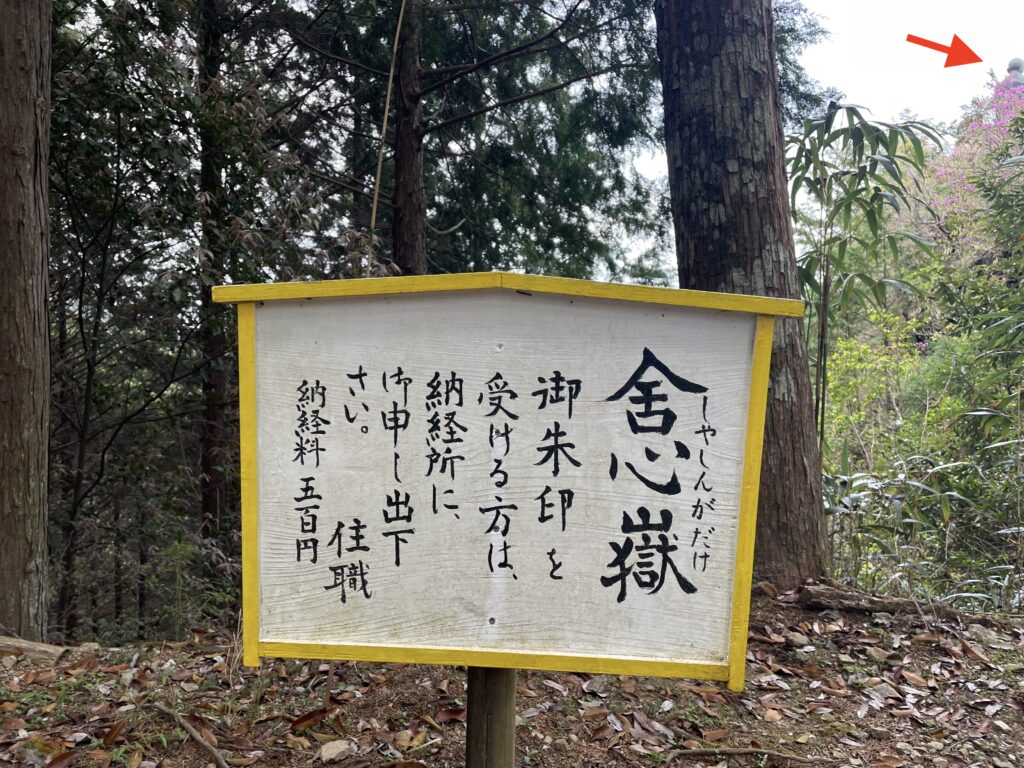 舍心嶽
しやしんがだけ
御朱印を
受ける方は、
納経所に、
御申し出下
さい。 住職
納経料 五百円